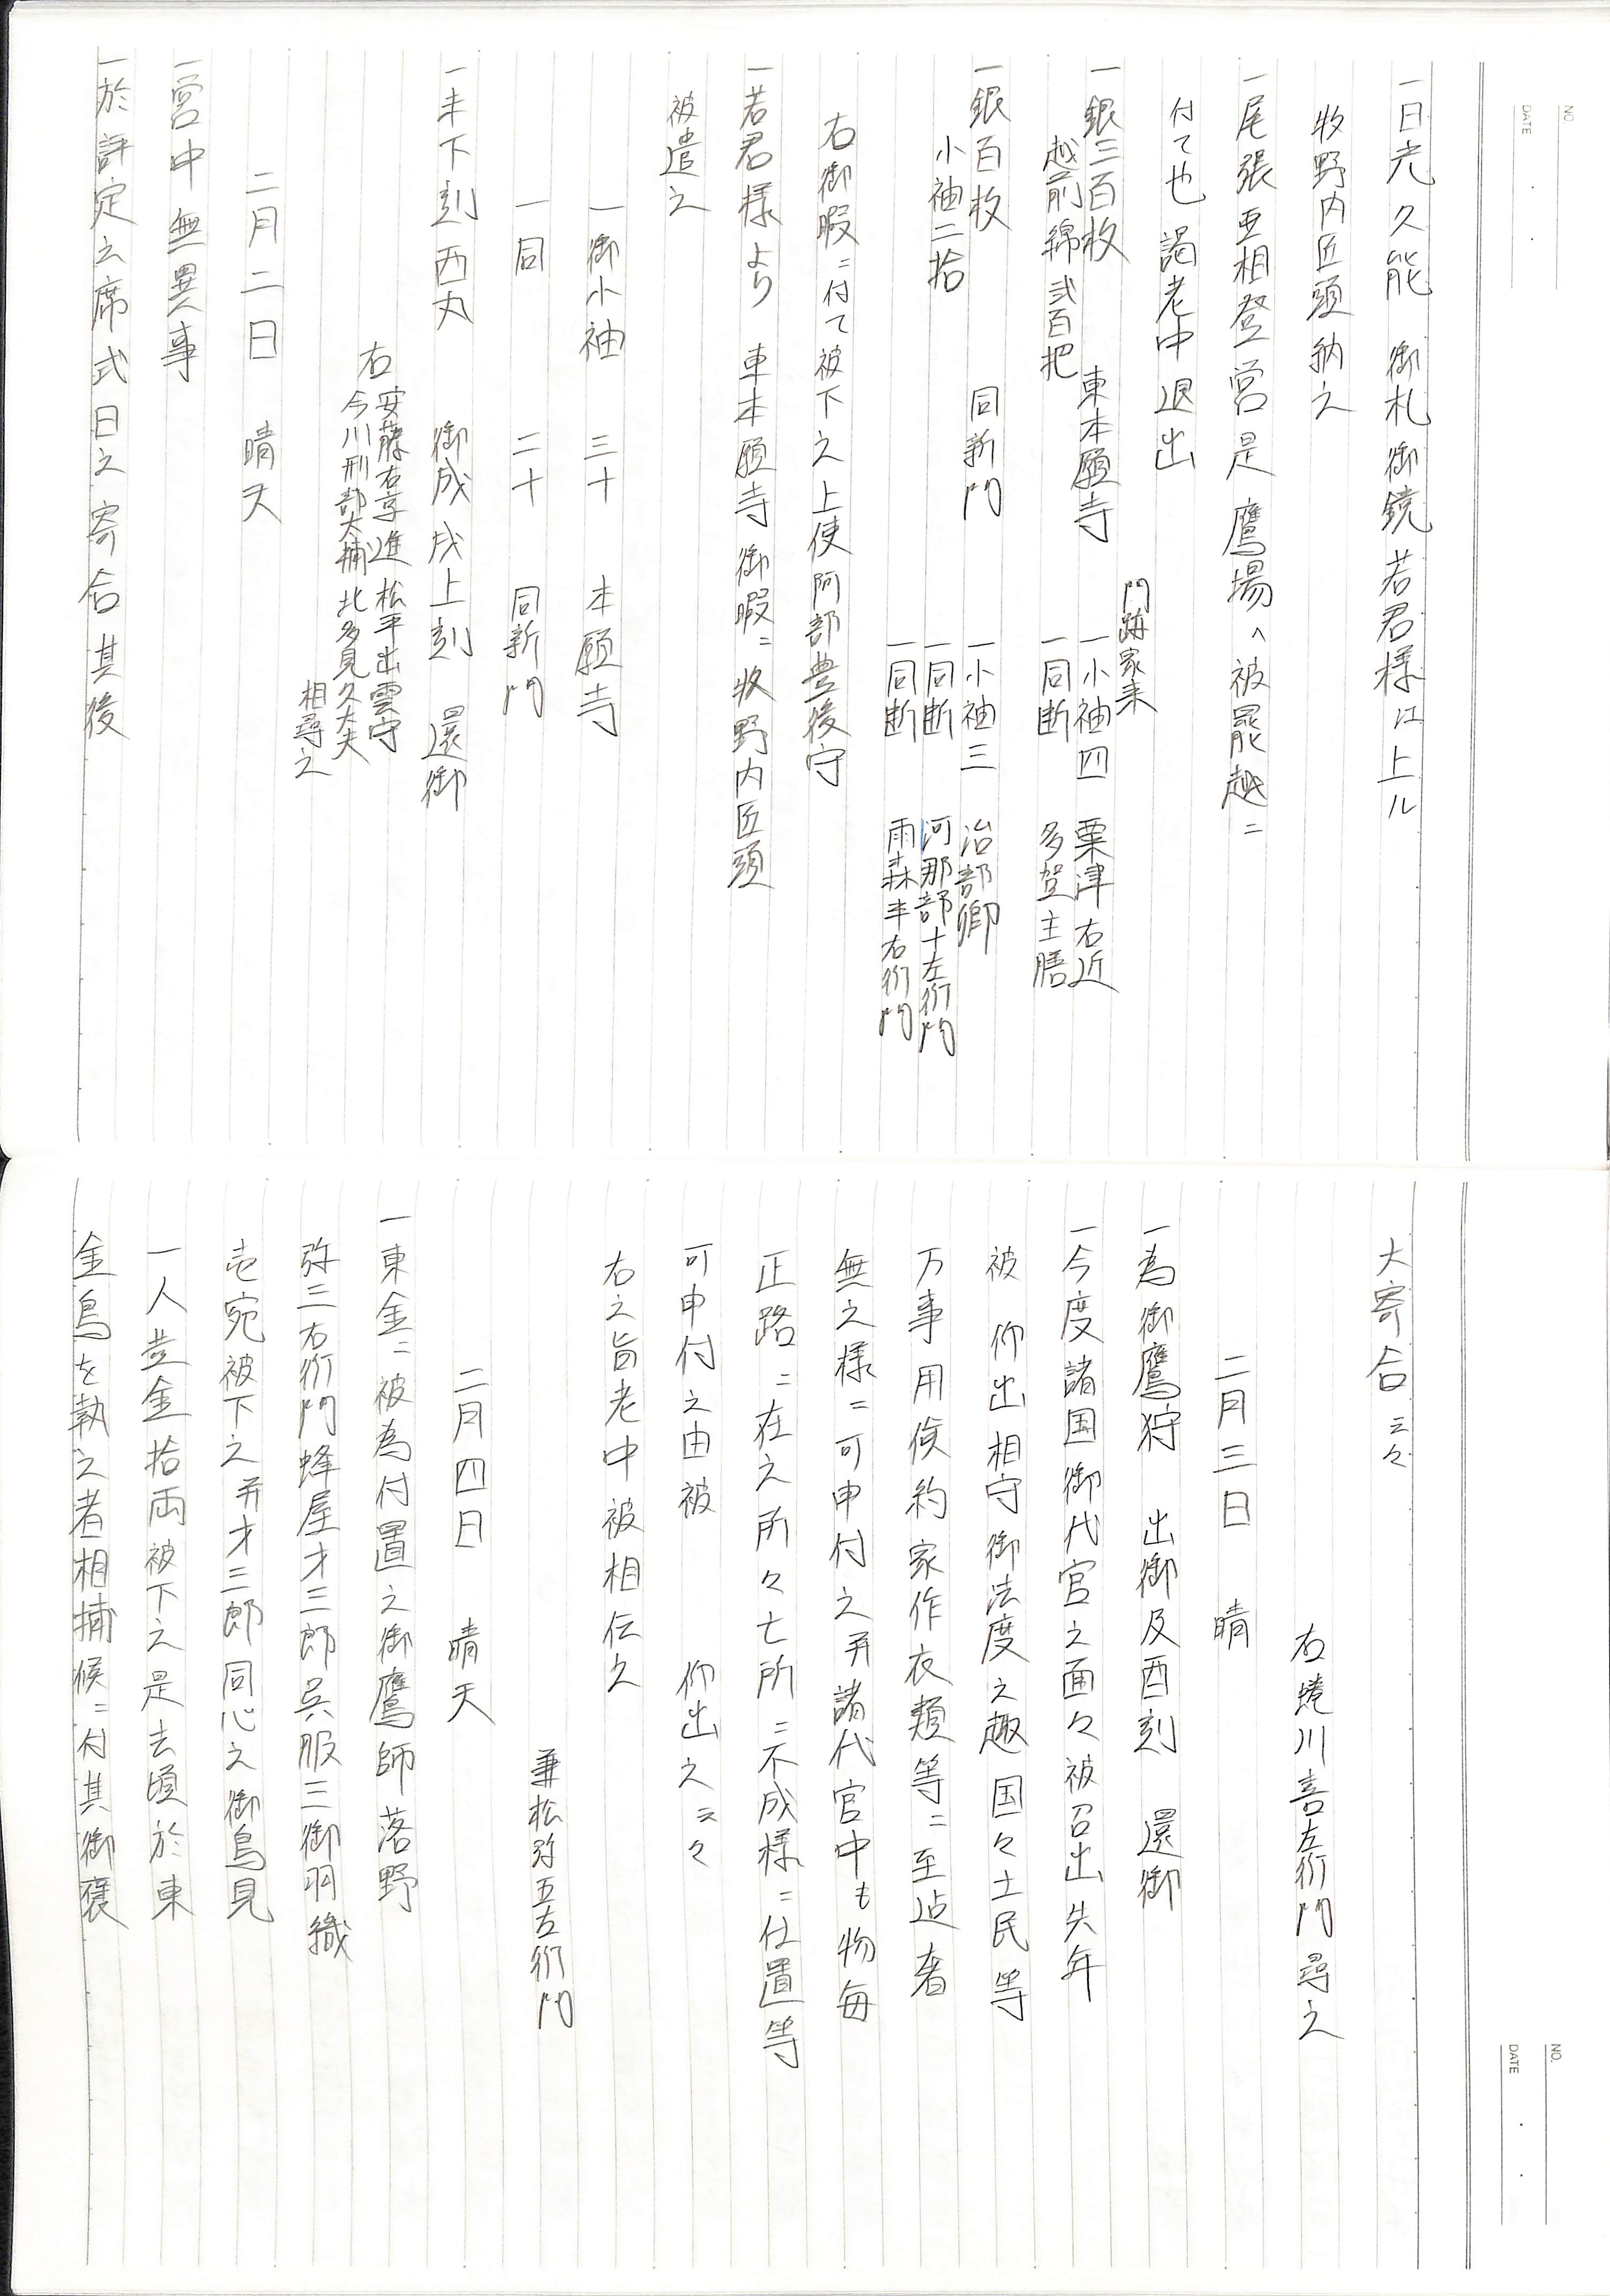 一日光久能　御札御鏡若君様江上ル
牧野内匠頭納之
一尾張亜相登営是鷹場へ被罷越ニ
付て也　謁老中退出
門跡家来
一銀三百枚　東本願寺　一小袖四　粟津右近
越前綿弐百把　一同断　多賀主膳
一銀百枚　同新門　一小袖三　治部卿
小袖二拾　一同断　河那部十左衛門
一同断　雨森半右衛門
右御暇ニ付て被下之上使阿部豊後守
一若君様より　東本願寺御暇ニ牧野内匠頭
被遣之
一御小袖　三十　本願寺
一同　二十　同新門
一未下刻西丸　御成戌上刻　還御
右　安藤右京進　松平出雲守
今川刑部大輔　北多見久太夫
相尋之
二月二日　晴天
一営中無異事
一於評定之席式日之寄合其後
大寄合云々
右蜷川喜左衛門尋之
二月三日　晴
一為御鷹狩　出御及酉刻　還御
一今度諸国御代官之面々被召出失年
被　仰出相守御法度之趣国々土民等
万事用倹約家作衣類等ニ至迄奢
無之様ニ可申付之并諸代官中も物毎
正路ニ在之所々亡所ニ不成様ニ仕置等
可申付之由被　仰出之云々
右之旨老中被相伝之
兼松弥五左衛門
二月四日　晴天
一東金ニ被為付置之御鷹師落野
弥三右衛門蜂屋才三郎呉服三御羽織
壱宛被下之并才三郎同心之御鳥見
一人並金拾両被下之是去頃於東
金鳥を執之者相捕候ニ付其御褒
NO.
DATE
NO.
DATE